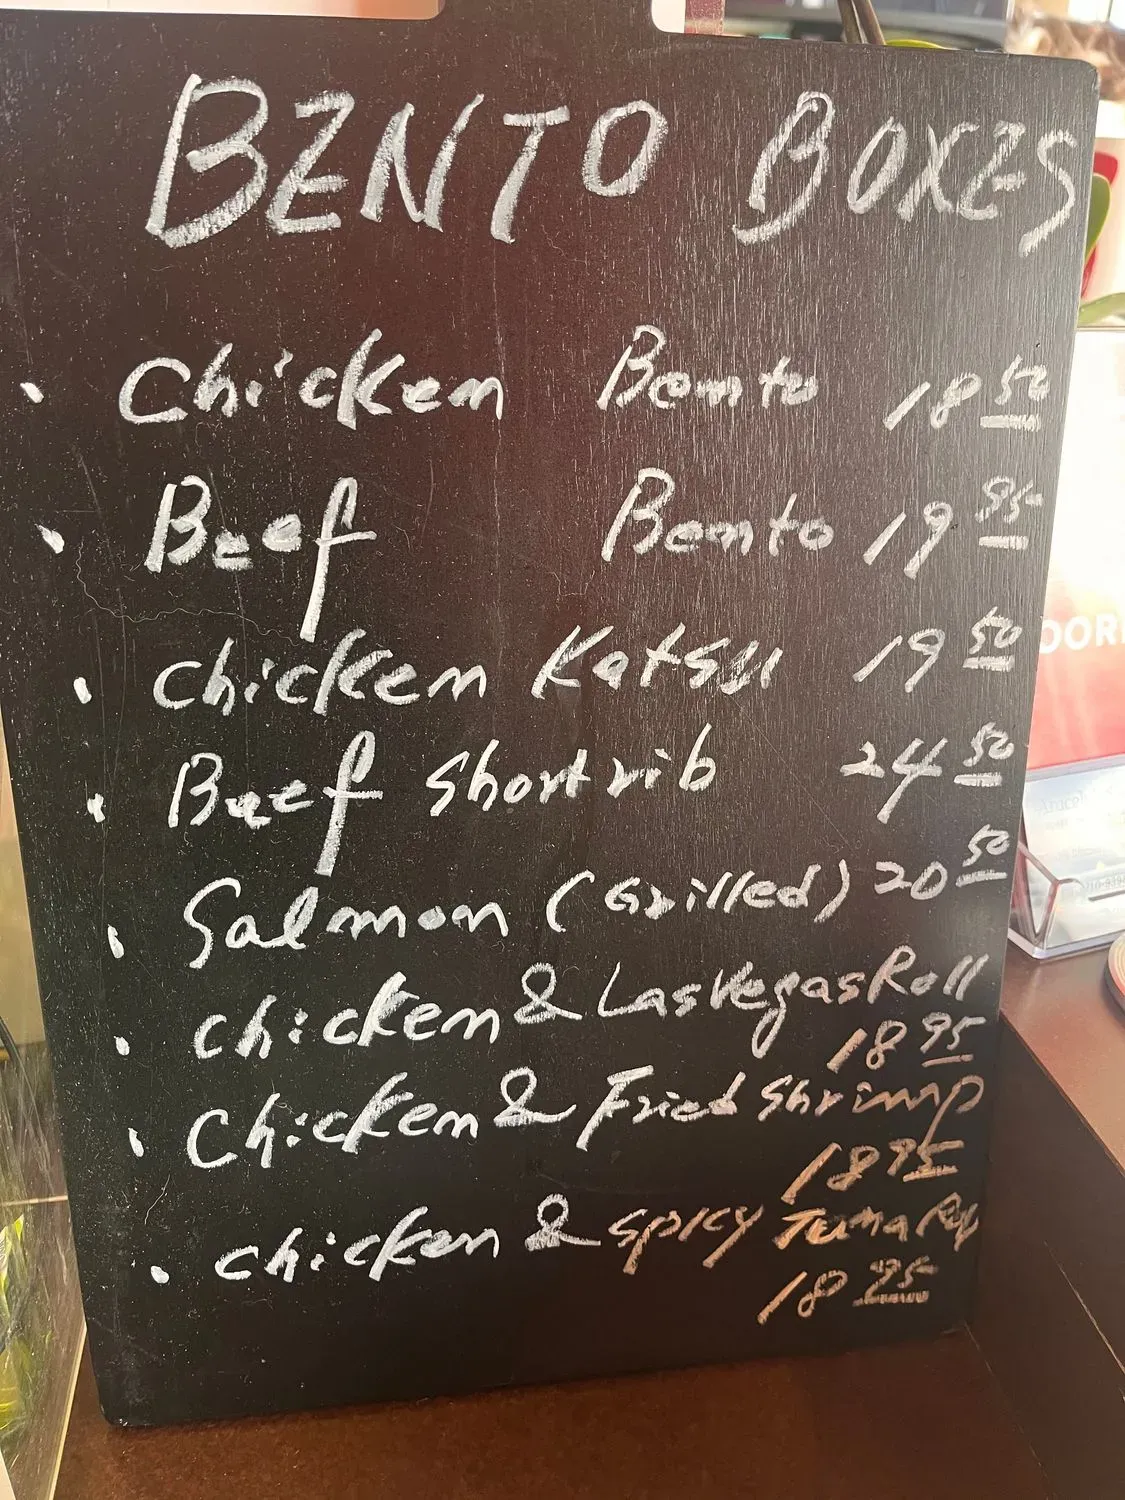 BENTO BOXES
• Chicken Bento 18 50
• Beef Bento 19 95
• Chicken Katsu 19 50
• Beef Shortrib 24 50
• Salmon (Grilled) 20 50
• Chicken & Las Vegas Roll
18 95
• Chicken & Fried Shrimp
18 95
• Chicken & Spicy Tuna Roll
18 95